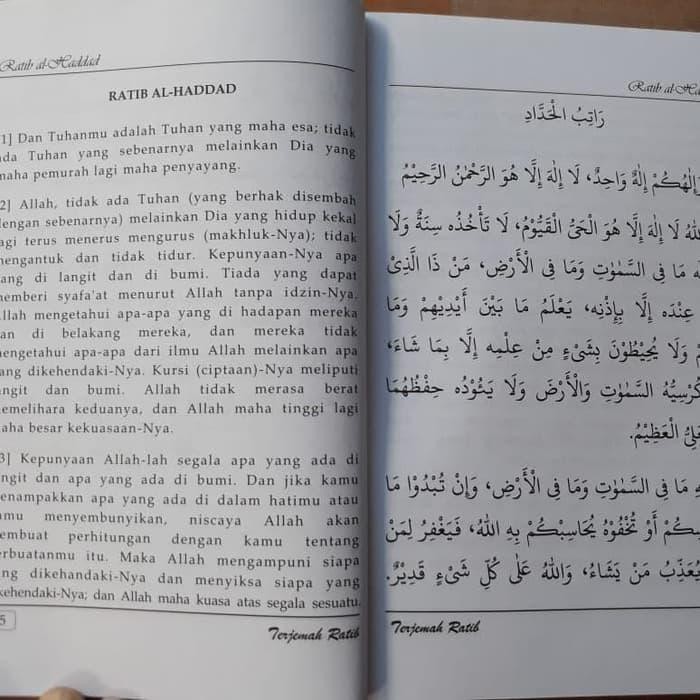 Ratib al-Haddad
RATIB AL-HADDAD
1] Dan Tuhanmu adalah Tuhan yang maha esa; tidak
ada Tuhan yang sebenarnya melainkan Dia yang
maha pemurah lagi maha penyayang.
2] Allah, tidak ada Tuhan (yang berhak disembah
dengan sebenarnya) melainkan Dia yang hidup kekal
lagi terus menerus mengurus (makhluk-Nya); tidak
mengantuk dan tidak tidur. Kepunyaan-Nya apa
yang di langit dan di bumi. Tiada yang dapat
memberi syafa'at menurut Allah tanpa idzin-Nya.
Allah mengetahui apa-apa yang di hadapan mereka
dan di belakang mereka, dan mereka tidak
mengetahui apa-apa dari ilmu Allah melainkan apa
yang dikehendaki-Nya. Kursi (ciptaan)-Nya meliputi
langit dan bumi. Allah tidak merasa berat
memelihara keduanya, dan Allah maha tinggi lagi
maha besar kekuasaan-Nya.
3] Kepunyaan Allah-lah segala apa yang ada di
langit dan apa yang ada di bumi. Dan jika kamu
menampakkan apa yang ada di dalam hatimu atau
kamu menyembunyikan, niscaya Allah akan
membuat perhitungan dengan kamu tentang
perbuatanmu itu. Maka Allah mengampuni siapa
yang dikehandaki-Nya dan menyiksa siapa yang
dikehendaki-Nya; dan Allah maha kuasa atas segala sesuatu.
5
Terjemah Ratib
Ratib al-Ha
رَاتِبُ الْحَدَّادِ
إِلٰهُكُمْ إِلٰهٌ وَاحِدٌ، لَا إِلٰهَ إِلَّا هُوَ الرَّحْمٰنُ الرَّحِيْمُ
اللهُ لَا إِلٰهَ إِلَّا هُوَ الْحَيُّ الْقَيُّوْمُ، لَا تَأْخُذُه سِنَةٌ وَلَا
مَا فِى السَّمٰوٰتِ وَمَا فِى الْأَرْضِ، مَنْ ذَا الَّذِىْ
عِنْدَه إِلَّا بِإِذْنِه، يَعْلَمُ مَا بَيْنَ أَيْدِيْهِمْ وَمَا
وَلَا يُحِيْطُوْنَ بِشَىْءٍ مِنْ عِلْمِه إِلَّا بِمَا شَاءَ،
كُرْسِيُّهُ السَّمٰوٰتِ وَالْأَرْضَ وَلَا يَئُوْدُه حِفْظُهُمَا
الْعَظِيْمُ.
مَا فِى السَّمٰوٰتِ وَمَا فِى الْأَرْضِ، وَإِنْ تُبْدُوْا مَا
أَوْ تُخْفُوْهُ يُحَاسِبْكُمْ بِهِ اللهُ، فَيَغْفِرُ لِمَنْ
يُعَذِّبُ مَنْ يَشَاءُ، وَاللهُ عَلٰى كُلِّ شَىْءٍ قَدِيْرٌ.
Terjemah Ratib